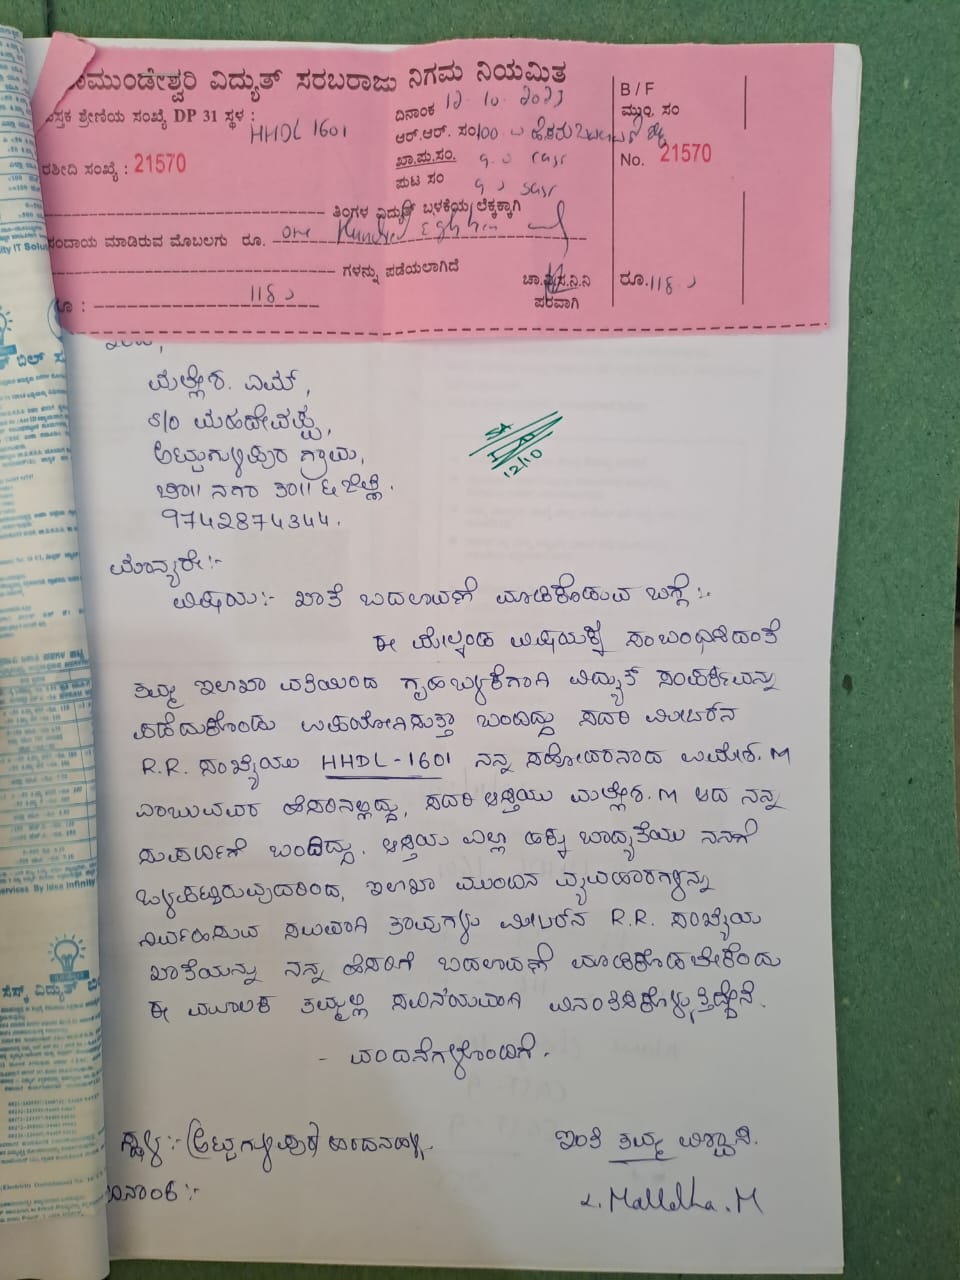 ಮುಂಡೇಶ್ವರಿ ವಿದ್ಯುತ್ ಸರಬರಾಜು ನಿಗಮ ನಿಯಮಿತ
ಸ್ತಕ ಶ್ರೇಣಿಯ ಸಂಖ್ಯೆ DP 31 ಸ್ಥಳ :
HHDL 1601
ರಶೀದಿ ಸಂಖ್ಯೆ : 21570
ದಿನಾಂಕ 12.10.2023
ಆರ್.ಆರ್. ಸಂ 100
ಖಾ.ಪು.ಸಂ. 9.0 CGST
ಪುಟ ಸಂ 9.0 SGST
B / F
ಮುಂ. ಸಂ
No. 21570
ತಿಂಗಳ ವಿದ್ಯುತ್ ಬಳಕೆಯ ಲೆಕ್ಕಕ್ಕಾಗಿ
ಸಂದಾಯ ಮಾಡಿರುವ ಮೊಬಲಗು ರೂ. One Hundred Eighteen
ಗಳನ್ನು ಪಡೆಯಲಾಗಿದೆ
ರೂ : 118
ಚಾ.ವಿ.ಸ.ನಿ.ನಿ
ಪರವಾಗಿ
ರೂ. 118
ಮಲ್ಲೇಶ. ಎಮ್,
S/O ಮಹದೇವಪ್ಪ,
ಅಟ್ಟುಗುಳಿಪುರ ಗ್ರಾಮ,
ಚಾ|| ನಗರ ತಾ|| & ಜಿಲ್ಲೆ.
9742874344.
12/10
ಮಾನ್ಯರೇ:-
ವಿಷಯ:- ಖಾತೆ ಬದಲಾವಣೆ ಮಾಡಿಕೊಡುವ ಬಗ್ಗೆ:-
ಈ ಮೇಲ್ಕಂಡ ವಿಷಯಕ್ಕೆ ಸಂಬಂಧಿಸಿದಂತೆ
ತಮ್ಮ ಇಲಾಖಾ ವತಿಯಿಂದ ಗೃಹಬಳಕೆಗಾಗಿ ವಿದ್ಯುತ್ ಸಂಪರ್ಕವನ್ನು
ಪಡೆದುಕೊಂಡು ಉಪಯೋಗಿಸುತ್ತಾ ಬಂದಿದ್ದು ಸದರಿ ಮೀಟರ್‌ನ
R.R. ಸಂಖ್ಯೆಯು HHDL-1601 ನನ್ನ ಸಹೋದರನಾದ ಉಮೇಶ. M
ಎಂಬುವವರ ಹೆಸರಿನಲ್ಲಿದ್ದು, ಸದರಿ ಆಸ್ತಿಯು ಮಲ್ಲೇಶ. M ಆದ ನನ್ನ
ಸುಪರ್ದಿಗೆ ಬಂದಿದ್ದು. ಆಸ್ತಿಯ ಎಲ್ಲಾ ಹಕ್ಕು ಬಾದ್ಯತೆಯು ನನಗೆ
ಒಳಪಟ್ಟಿರುವುದರಿಂದ, ಇಲಾಖಾ ಮುಂದಿನ ವ್ಯವಹಾರಗಳನ್ನು
ನಿರ್ವಹಿಸುವ ಸಲುವಾಗಿ ತಾವುಗಳು ಮೀಟರ್‌ನ R.R. ಸಂಖ್ಯೆಯ
ಖಾತೆಯನ್ನು ನನ್ನ ಹೆಸರಿಗೆ ಬದಲಾವಣೆ ಮಾಡಿಕೊಡಬೇಕೆಂದು
ಈ ಮೂಲಕ ತಮ್ಮಲ್ಲಿ ಸವಿನಯವಾಗಿ ವಿನಂತಿಸಿಕೊಳ್ಳುತ್ತಿದ್ದೇನೆ.
- ವಂದನೆಗಳೊಂದಿಗೆ -
ಸ್ಥಳ :- (ಅಟ್ಟುಗುಳಿಪುರ)
ಇಂತಿ ತಮ್ಮ ವಿಶ್ವಾಸಿ.
ದಿನಾಂಕ :-